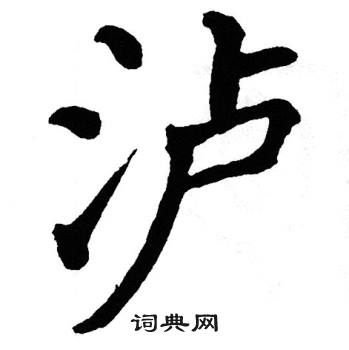 泸
词典网